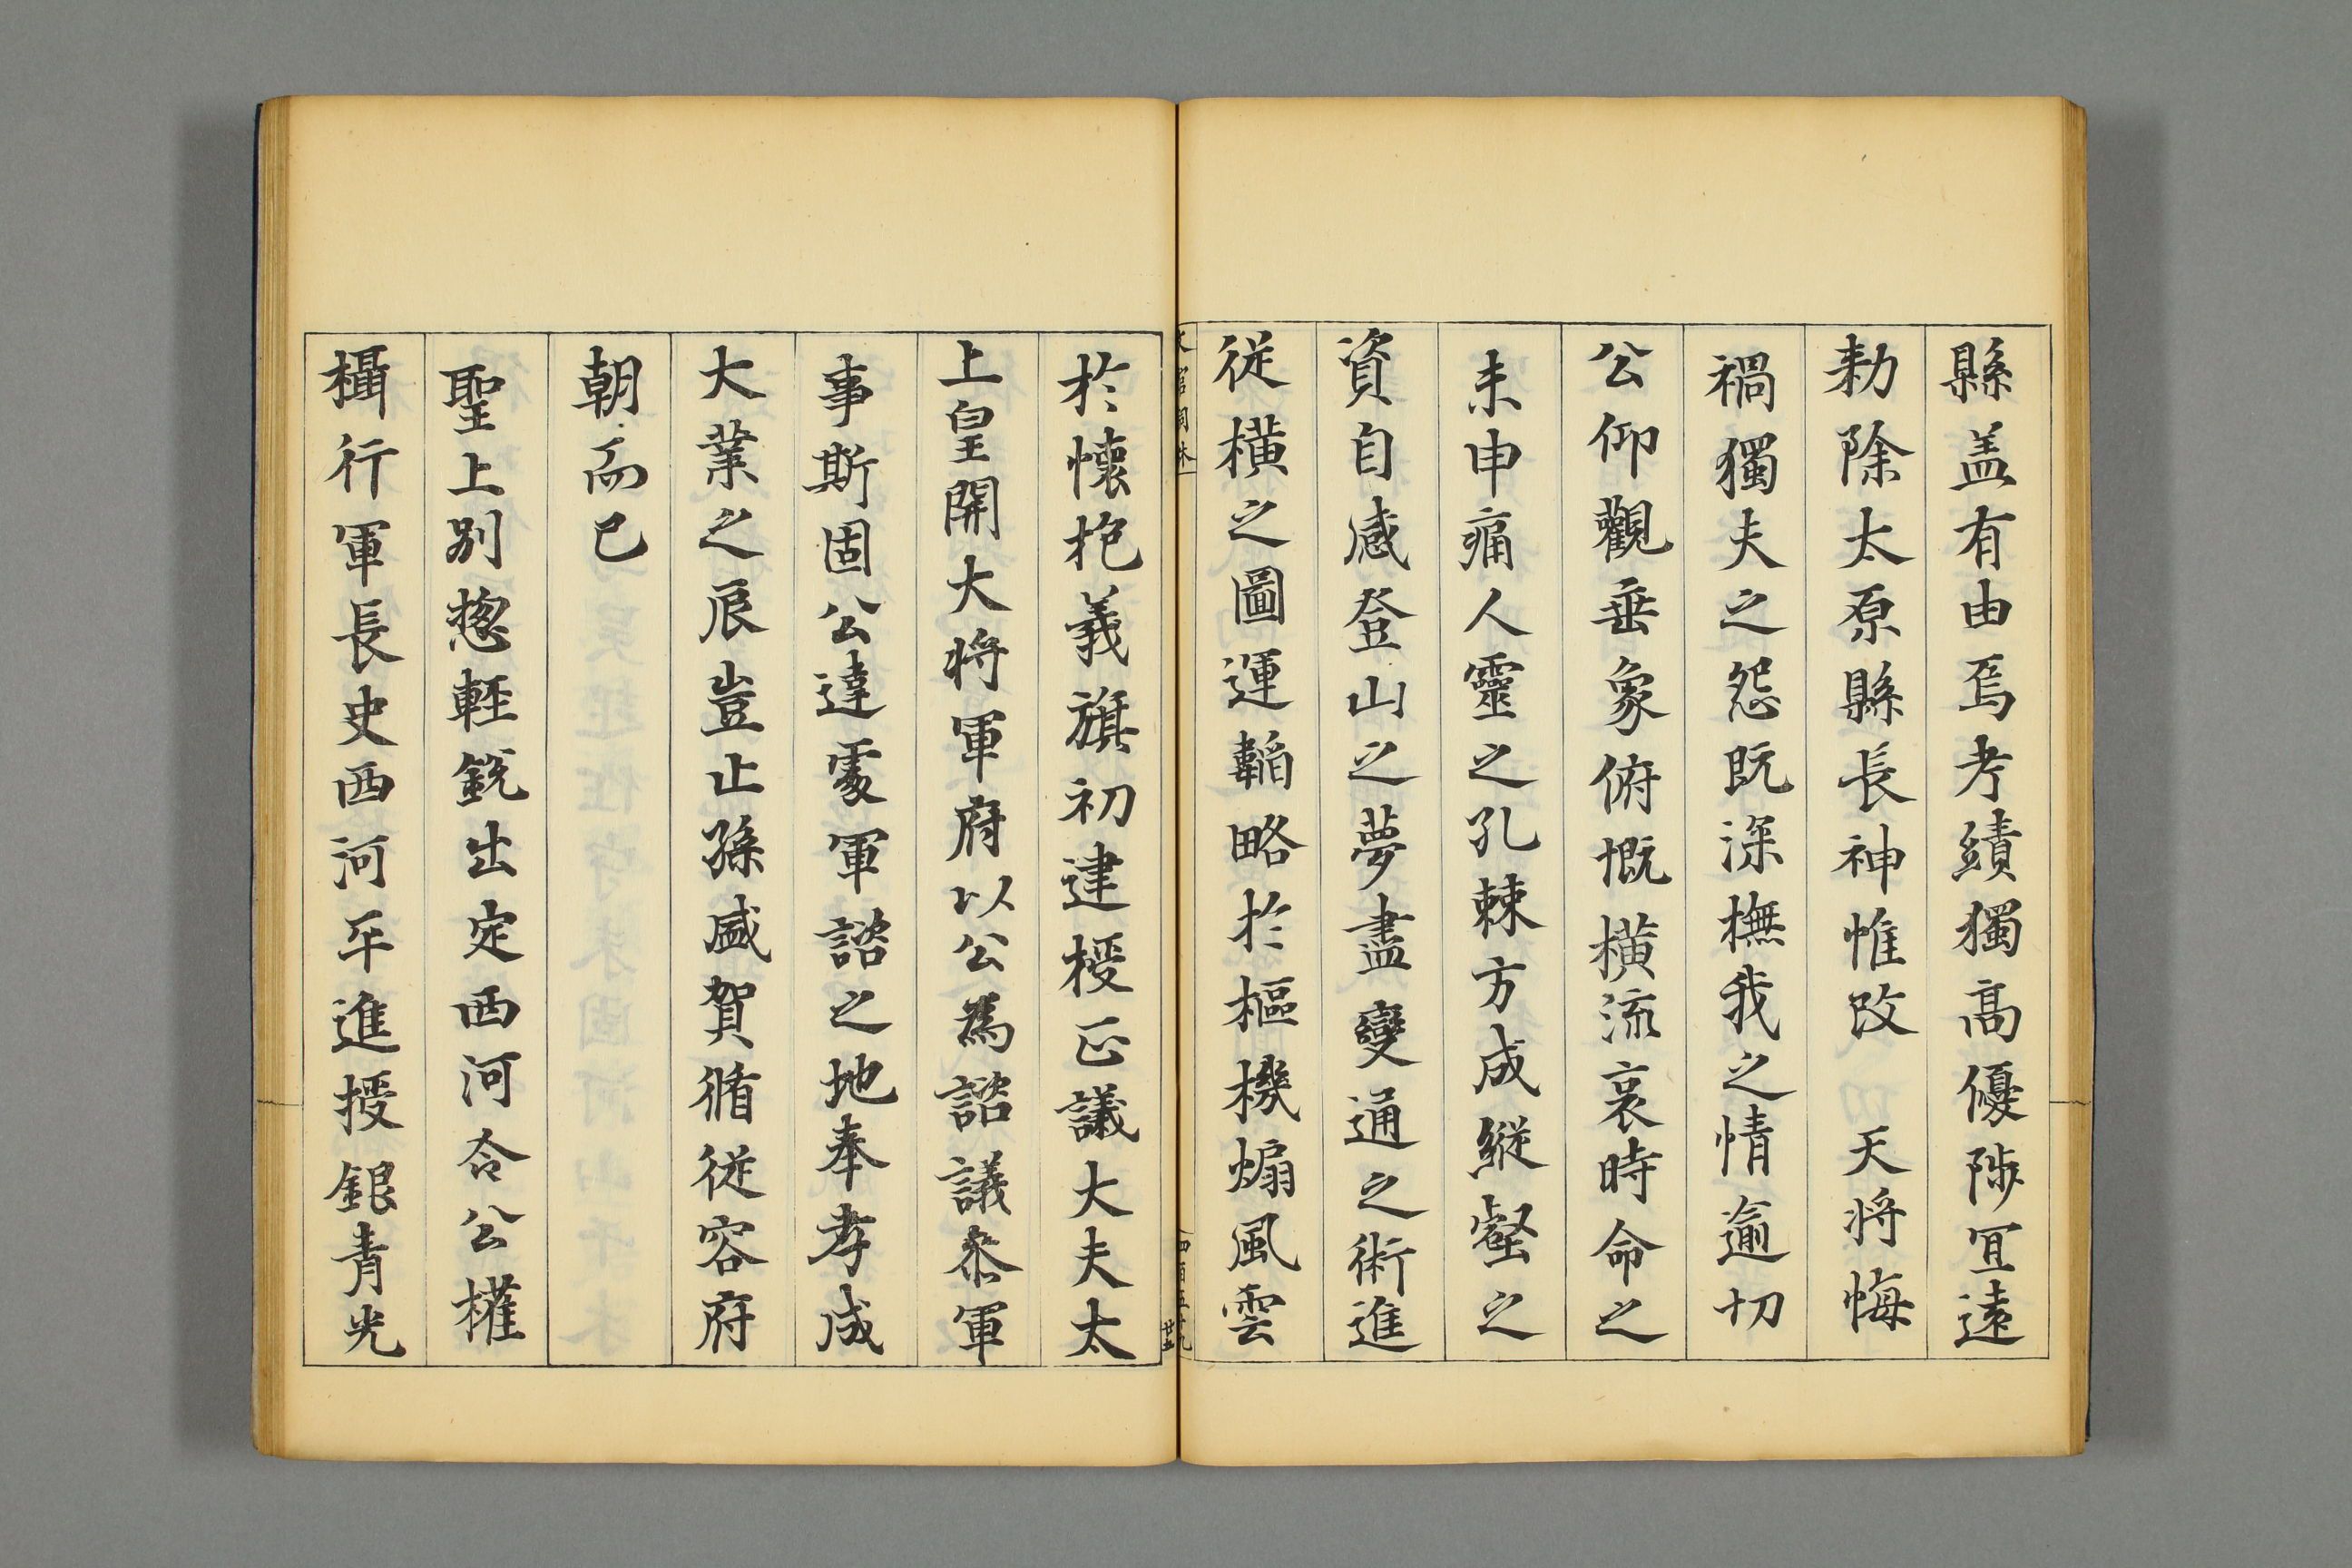 縣盖有由焉考績獨高優陟冝遠
勑除太原縣長神惟改 天将悔
禍獨夫之怨既深撫我之情逾切
公仰觀垂象俯慨横流哀時命之
未申痛人靈之孔棘方成縱壑之
資自感登山之夢盡變通之術進
従橫之圖運韜略於樞機煽風雲
於懷抱義旗初建授正議大夫太
上皇開大将軍府以公為諮議叅軍
事斯固公達處軍諮之地奉孝成
大業之辰豈止孫盛賀循従容府
朝而已
聖上別揔輕銳出定西河令公權
攝行軍長史西河平進授銀青光